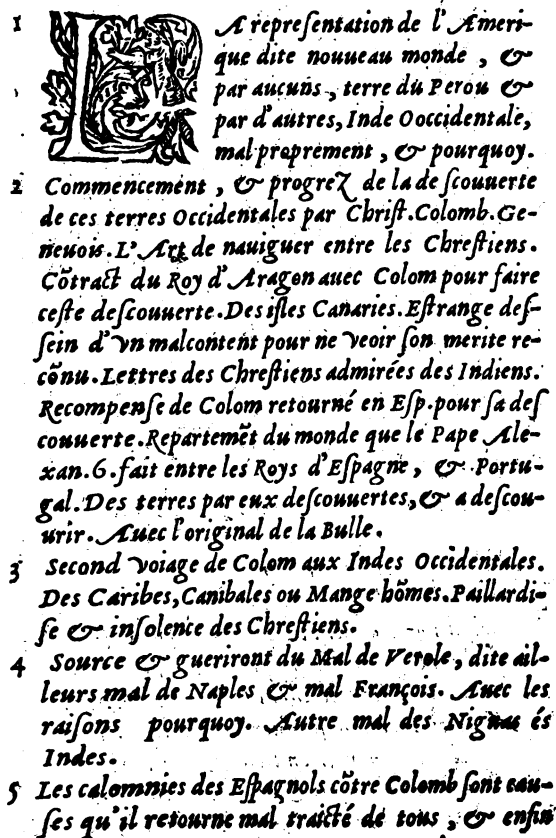 1 LA repreſentation de l'Ameri-
que dite nouueau monde, &
par aucuns, terre du Perou &
par d'autres, Inde Ooccidentale,
mal proprement, & pourquoy.
2 Commencement, & progrez de la deſcouuerte
de ces terres Occidentales par Chriſt. Colomb. Ge-
neuois. L'Art de nauiguer entre les Chreſtiens.
Cõtract du Roy d'Aragon auec Colom pour faire
ceſte deſcouuerte. Des iſles Canaries. Eſtrange deſ-
ſein d'vn malcontent pour ne veoir ſon merite re-
cõnu. Lettres des Chreſtiens admirées des Indiens.
Recompenſe de Colom retourné en Eſp. pour ſa deſ
couuerte. Repartemẽt du monde que le Pape Ale-
xan. 6. fait entre les Roys d'Eſpagne, & Portu-
gal. Des terres par eux deſcouuertes, & a deſcou-
urir. Auec l'original de la Bulle.
3 Second voiage de Colom aux Indes Occidentales.
Des Caribes, Canibales ou Mange hõmes. Paillardi-
ſe & inſolence des Chreſtiens.
4 Source & gueriront du Mal de Verole, dite ail-
leurs mal de Naples & mal François. Auec les
raiſons pourquoy. Autre mal des Niguas és
Indes.
5 Les calomnies des Eſpagnols cõtre Colomb ſont cau-
ſes qu'il retourne mal traicté de tous, & enfin